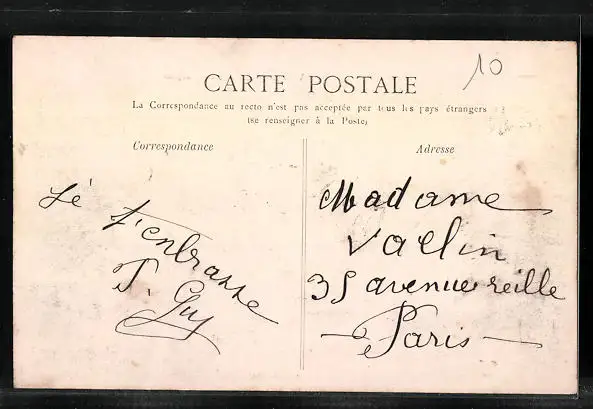 10
CARTE POSTALE
La Correspondance au recto n'est pas acceptée par tous les pays étrangers
(se renseigner à la Poste)
Correspondance
Adresse
Jé t'enbrasse
T. Guy
Madame
Vallin
35 avenue reille
Paris